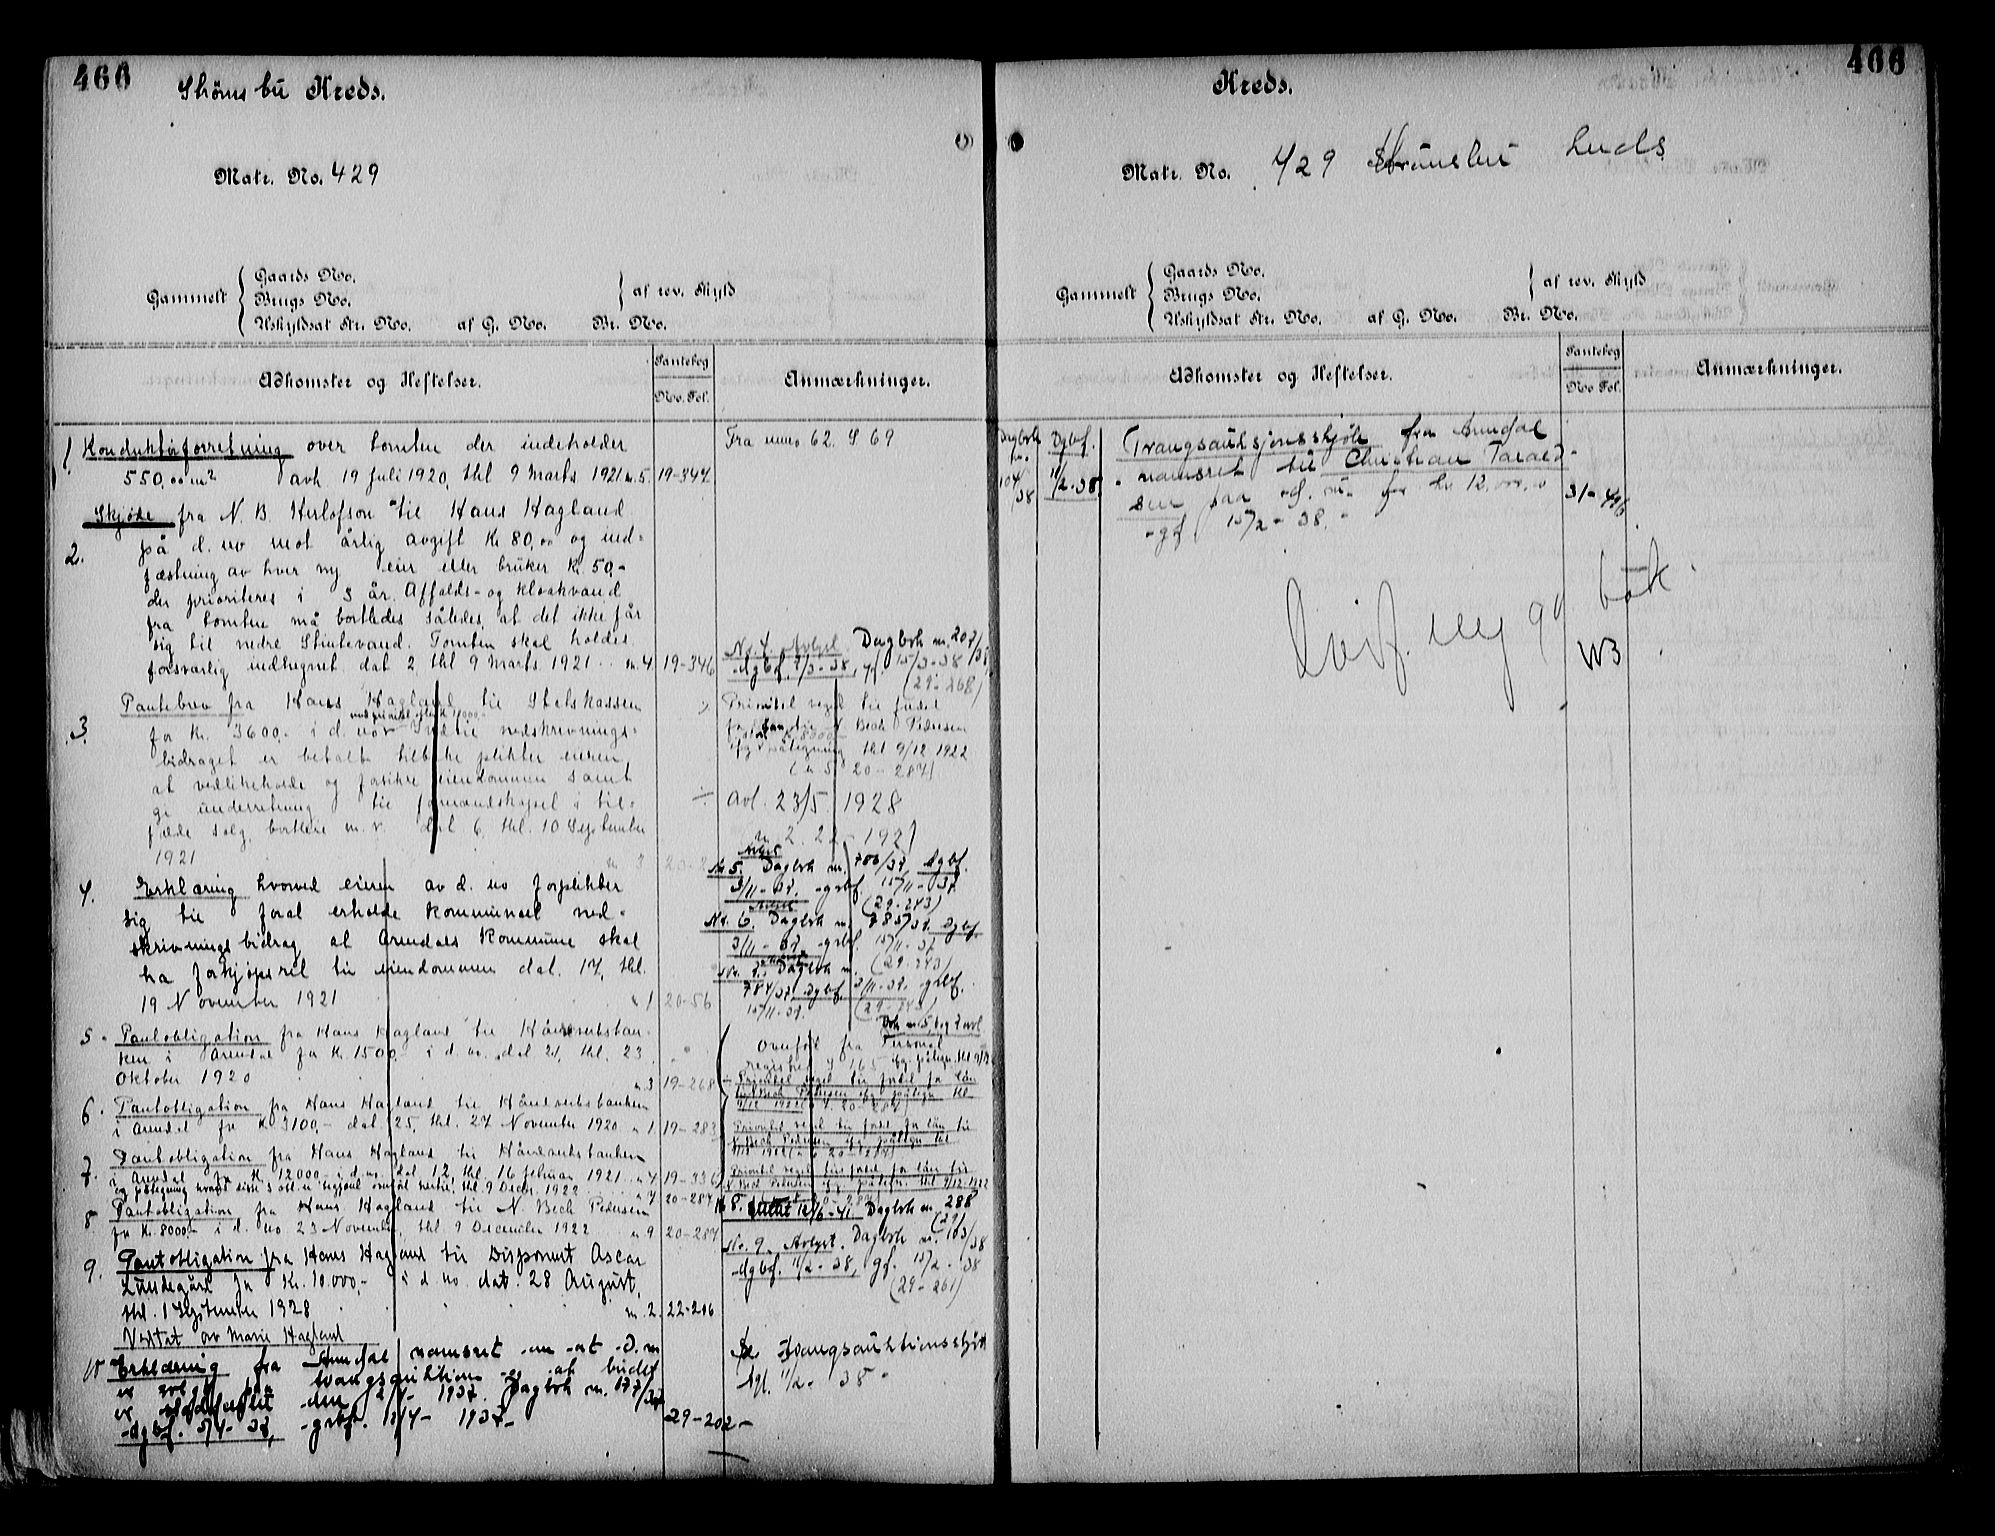 466
Strömsbu Kreds.
Matr. No. 429
Gammelt
Gaards No.
Brugs No.
Uskyldsat Str. No. af G. No. Br. No.
af rev. Skyld
Adkomster og Heftelser.
Pantebog
No. Fol.
Anmærkninger.
1 Konduktørforretning over tomten der indeholder
550,00 m² avh 19 Juli 1920, thl 9 Marts 1921 n. 5. 19-347
Fra mno 62. S 69
2. Skjøde fra N. B. Herlofson til Hans Hagland
på d. no mot årlig avgift Kr 80,00 og ind-
fæstning av hver ny eier eller bruker Kr. 50,-
der prioriteres i 3 år. Affalds- og kloakvand
fra tomten må bortledes således, at det ikke får
sig til nedre Stintevand. Tomten skal holdes
forsvarlig indhegnet dat 2, thl 9 Marts 1921 n. 4 19-346
No. 4. Avlyst Dagbok n. 207/38
dgbf. 9/3-38, gf. 15/3-38
(29-268)
3. Pantebrev fra Hans Hagland til Statskassen
for Kr. 3600,- i d. no. Indtil nedskrivnings-
bidraget er betalt tilbake plikter eieren
at vedlikeholde og forsikre eiendommen samt
gi underretning til formandskapet i til-
fælde salg, bortleie m. v. dat 6, thl. 10 September
1921
Prioritet veget til fordel
for lån til N. Bech Pedersen
Kr 8000
ifg påtegning thl 9/12 1922
(n 5 20-287)
Avl. 23/5 1928
n 2. 22 - 192
4. Erklæring hvorved eieren av d. no forplikter
sig til for at erholde kommunal ned-
skrivningsbidrag, at Arendals Kommune skal
ha forkjøpsret til eiendommen dat. 17, thl.
19 November 1921 n 1 20-56
No 5. Dagbok n. 786/37. dgbf.
3/11-37. -grbf. 15/11-37.
(29-243)
No. 6. Dagbok n. 785/37. dgbf.
3/11-37. -grbf. 15/11-37
(29-243)
No. 7. Dagbok n.
784/37. dgbf. 3/11-37. grbf.
15/11-37.
5. Pantobligation fra Hans Hagland til Håndverksban-
ken i Arendal for Kr. 1500,- i d. no. dat 21, thl. 23
Oktober 1920 n. 3 19-268
Overført fra Personal
register
6. Pantobligation fra Hans Hagland til Håndverksbanken
i Arendal for Kr 3100,- dat 25, thl. 27 November 1920 n 1 19-283
7. Pantobligation fra Hans Hagland til Håndverksbanken
i Arendal for Kr. 12000,- i d. no. dat 12, thl 16 februar 1921 n 4 19-336
n 7 20-287
8 Pantobligation fra Hans Hagland til N. Bech Pedersen
for Kr. 8000,- i d. no 23 November, thl. 9 December 1922 n 9 20-287
No 8. slettet 12/6-41. Dagbok n. 288
9. Pantobligation fra Hans Hagland til Disponent Oscar
Lundegård for Kr. 10.000,- i d no. dat. 28 August,
thl. 1 September 1928 n. 2. 22-216
Vedtat av Marie Hagland
No. 9. Avlyst. Dagbok n. 103/38
-dgbf. 11/2-38, gf. 15/2-38
(29-261)
10 Erklæring fra Arendal namsret om at d. no
er solgt på tvangsauktion og at budet
er stadfestet den 2/4-1937. Dagbok n. 177/37
-dgbf. 5/4-37, -grbf. 13/4-1937- 29-202-
Se Tvangsauktionsskjøte
dgf. 11/2-38-
466
Kreds.
Matr. No. 429 Strømsbu Kreds
Gammelt
Gaards No.
Brugs No.
Uskyldsat Str. No. af G. No. Br. No.
af rev. Skyld
Adkomster og Heftelser.
Pantebog
No Fol.
Anmærkninger.
Dagbok n. 104/38
Dgbf. 11/2-38.
Tvangsauksjonsskjøte fra Arendal
namsret til Christian Tarald-
sen paa d. no. for kr. 12,000,-
-gf 15/2-38.-
31-